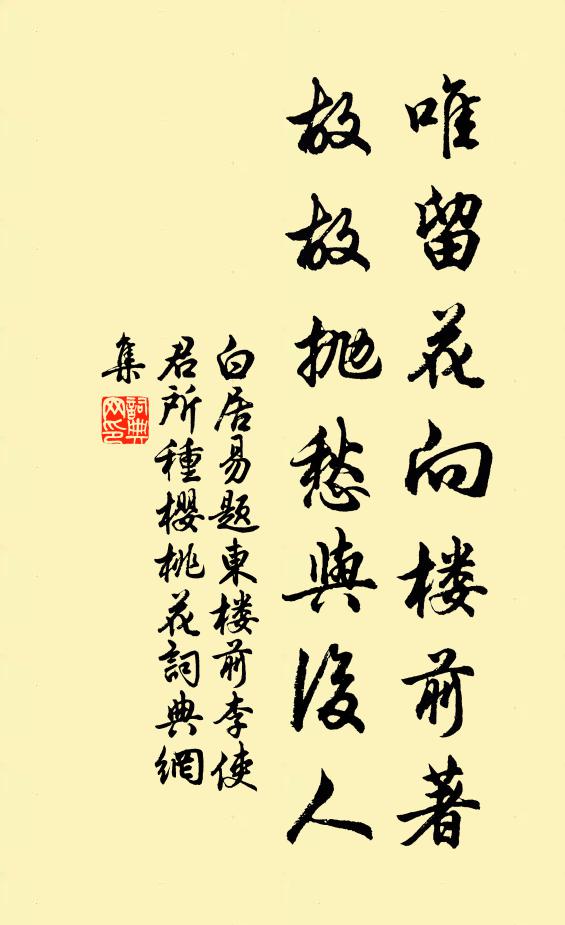 唯留花向楼前著
故故抛愁與後人
白居易题東楼前李使
君所種櫻桃花詞典網
集
詞典网印